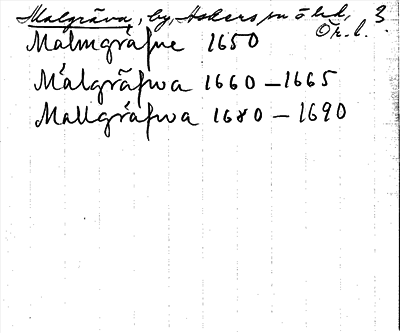 Malgräva, by, Askers sn ö. hd, 3.
Ör. l.
Malmgräfne 1650
Malgräfwa 1660 – 1665
Mallgräfwa 1680 – 1690